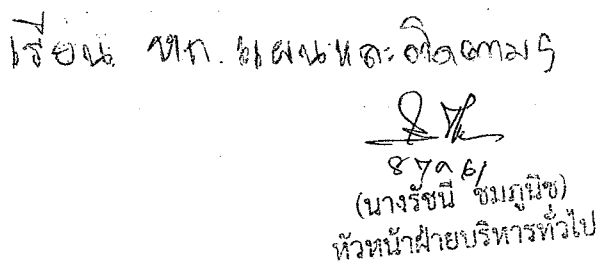 เรียน หก. แผนและติดตามฯ
(นางรัชนี ชมภูนิช)
หัวหน้าฝ่ายบริหารทั่วไป